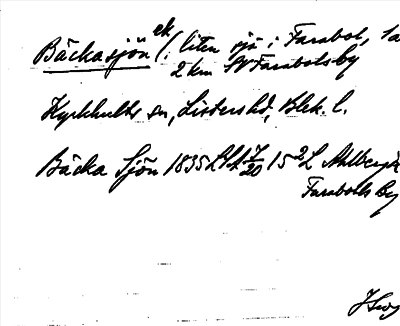 Bäckasjön ek (: liten sjö i Farabol, 1a
2 km SV Farabols by
Kyrkhults sn, Listers hd, Blek. l.
Bäcka Sjön 1835 7/20 15 2 L
Farabols By